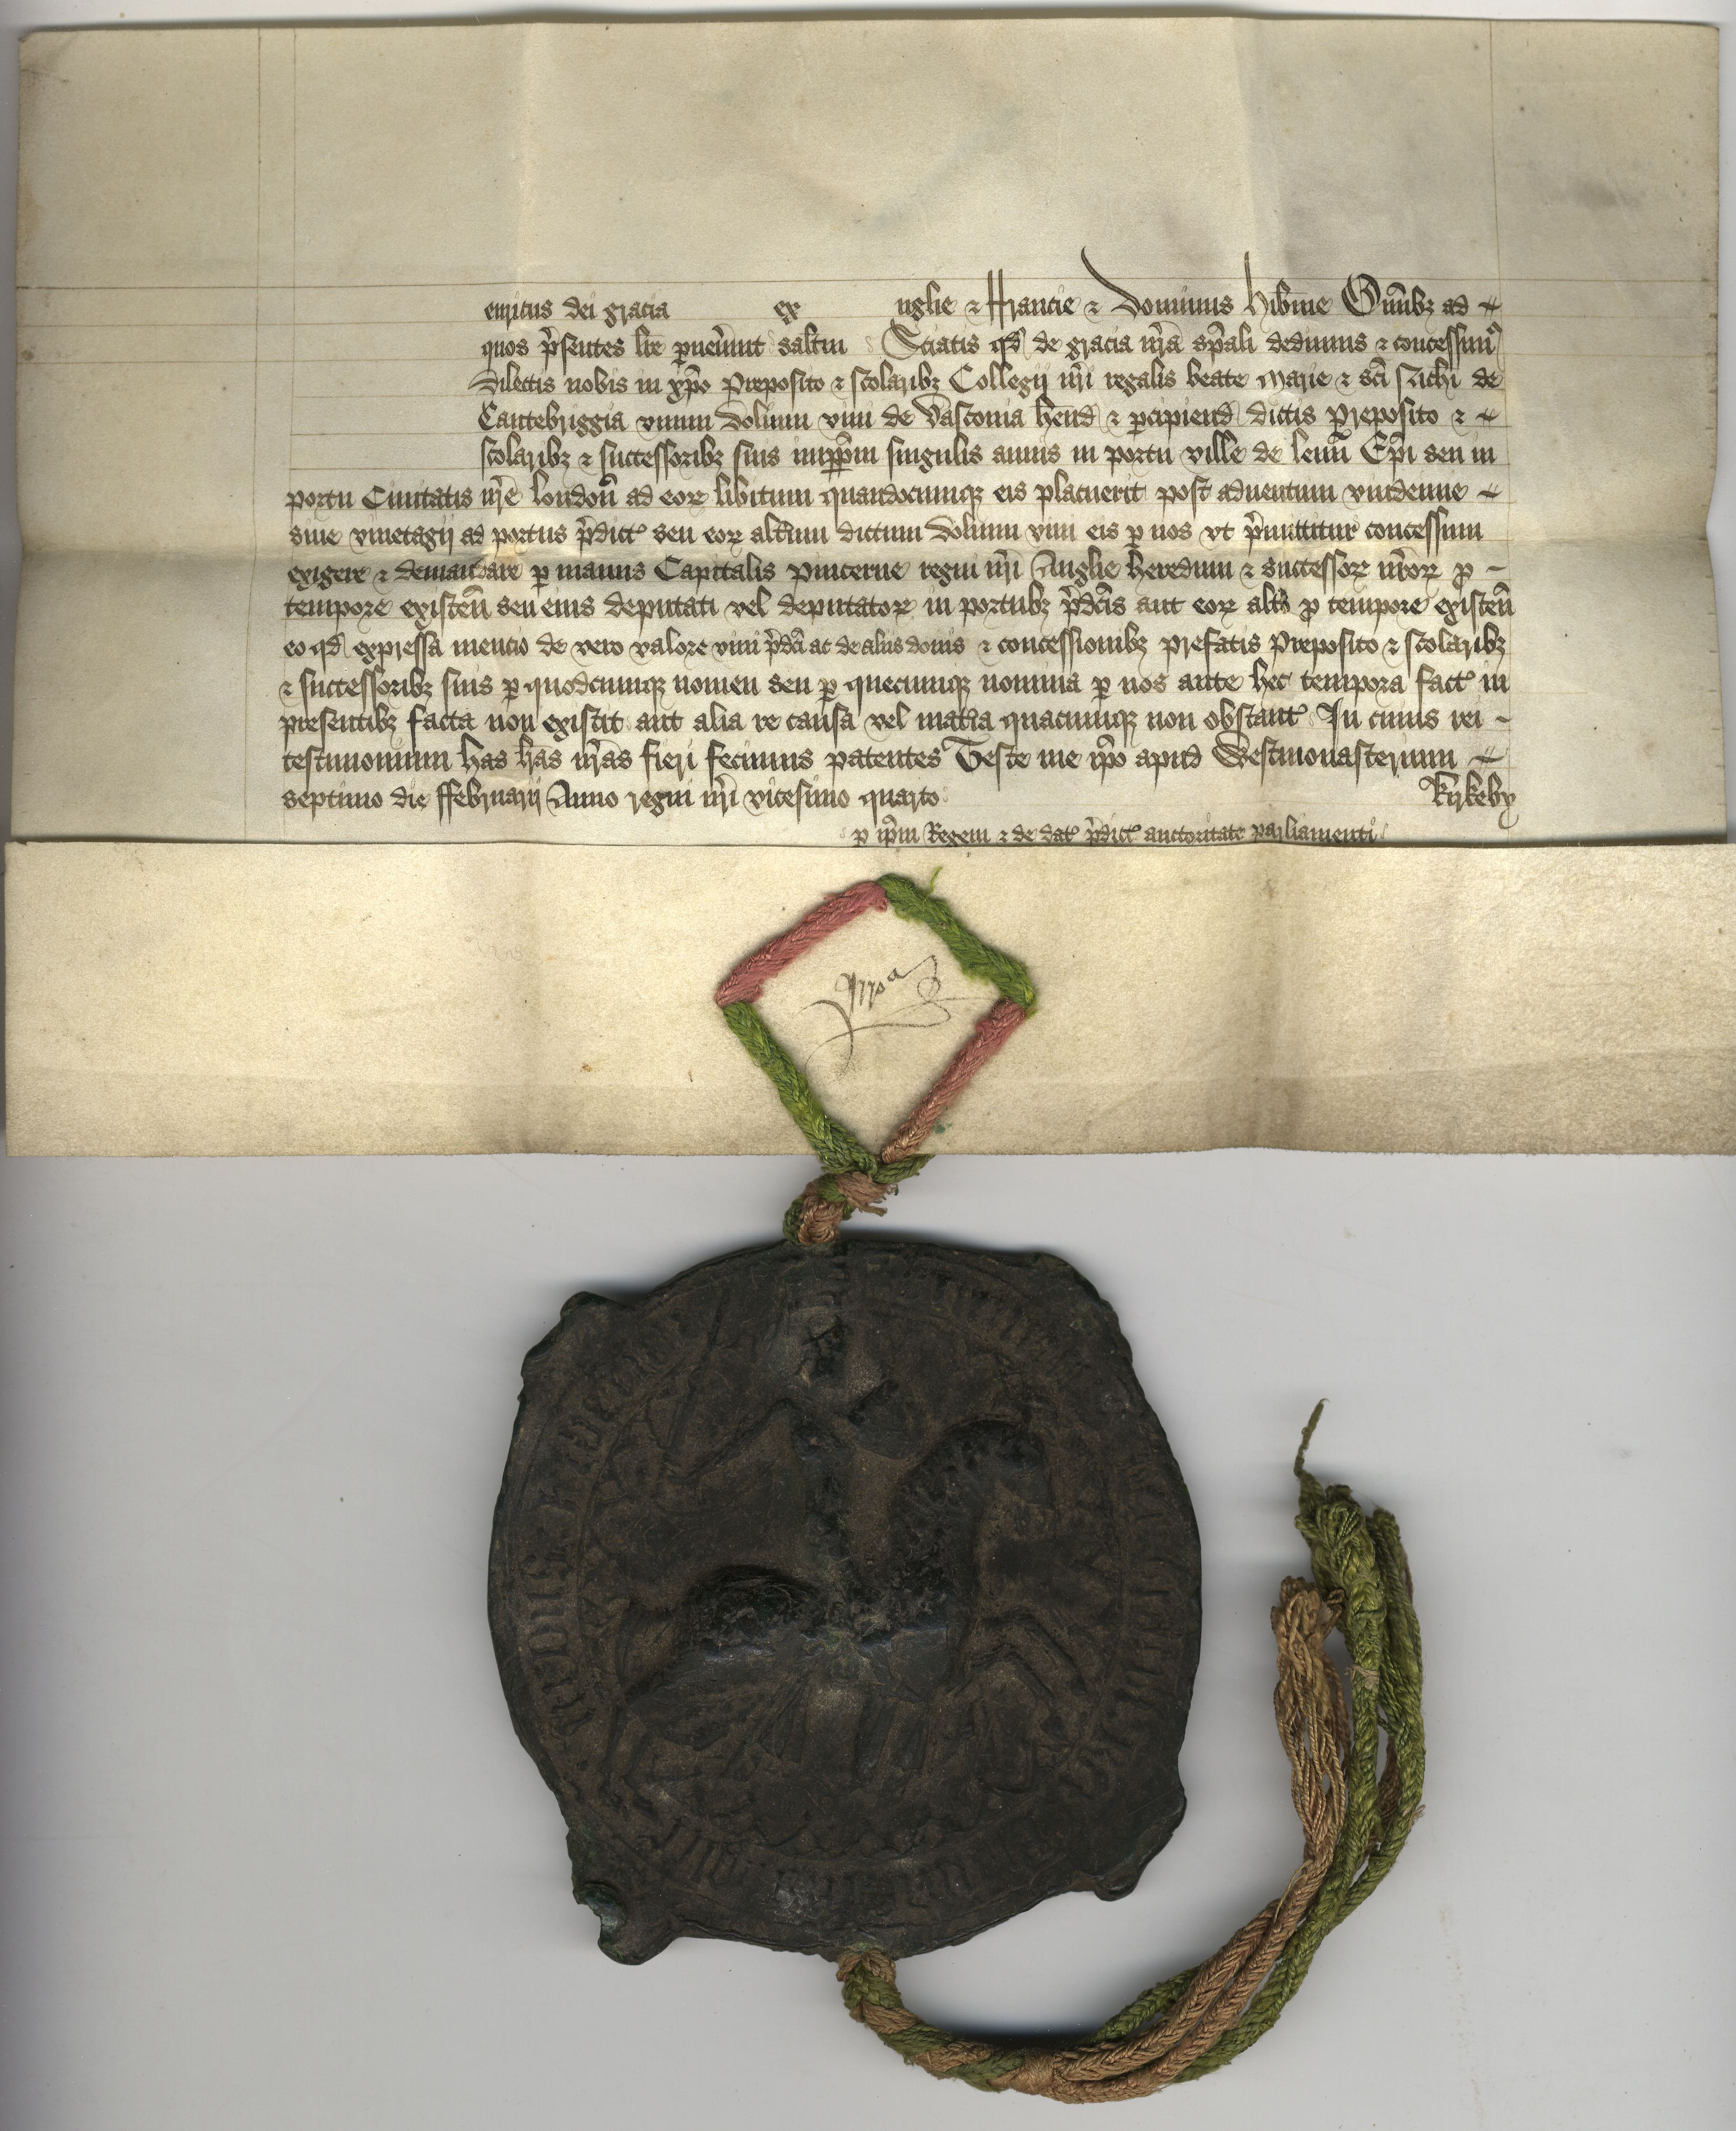 enricus dei gracia ex nglie & ffrancie & Dominus Hibnie Omibz ad
quos p̃sentes lre pueñint saltm Sciatis qd de gracia nr̃a sp̃ali dedimus & concessim⁹
Dilectis nobis in xp̃o Preposito & scolaribz Collegij nr̃i regalis beate Marie & sc̃i Nichi de
Cantebriggia vnum Dolium vini de Vasconia hend̃ & pcipiend̃ dictis Preposito &
scolaribz & successoribz suis imppm̃ singulis annis in portu ville de lenñ Ep̃i seu in
portu Ciuitatis nr̃e londoñ ad eoꝝ libitum quandocumqz eis placuerit post aduentum vindemie
siue vinetagij ad portus p̃dict seu eoꝝ alt̃im dictum Dolium vini eis p nos vt p̃mittitur concessum
exigere & demandare p manus Capitalis Pincerne regni nr̃i Anglie heredum & successoꝝ nr̃oꝝ p
tempore existeñ seu eius deputati vel deputatoꝝ in portubz p̃dc̃is aut eoꝝ alt̃o p tempore existeñ
eo qd expressa mencio de vero valore vini p̃dc̃i ac de aliis donis & concessionibz prefatis Preposito & scolaribz
& successoribz suis p quodcumqz nomen seu p quecumqz nomina p nos ante hec tempora fact in
presentibz facta non existit aut alia re causa vel mat̃ia quacumqz non obstant In cuius rei
testimonium has lr̃as nr̃as fieri fecimus patentes Teste me ip̃o apud Westmonasterium
septimo die ffebruarij Anno regni nr̃i vicesimo quarto Kirkeby
p ip̃m Regem & de dat p̃dict auctoritate parliamenti